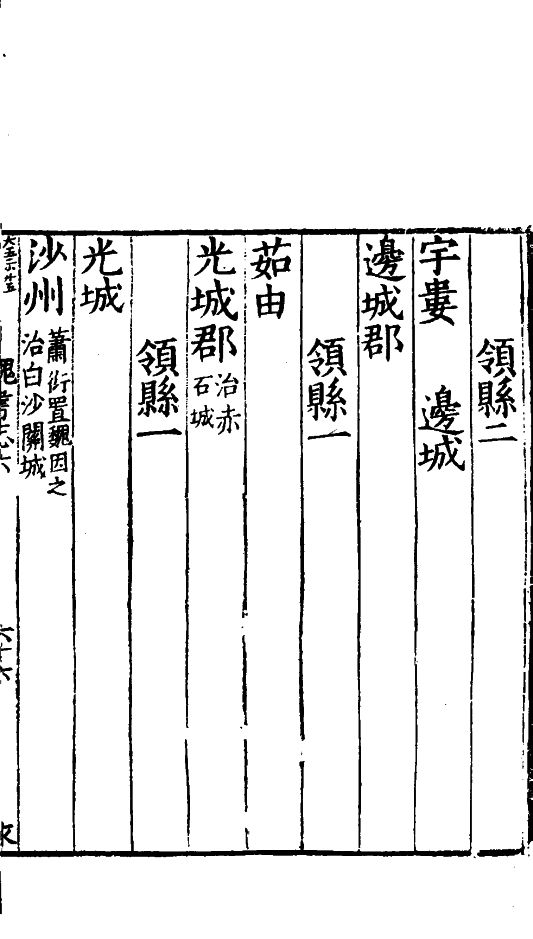 領縣二
宇婁　邊城
邊城郡
領縣一
茹由
光城郡治赤石城
領縣一
光城
沙州蕭衍置魏因之治白沙關城
魏書志六
六十六